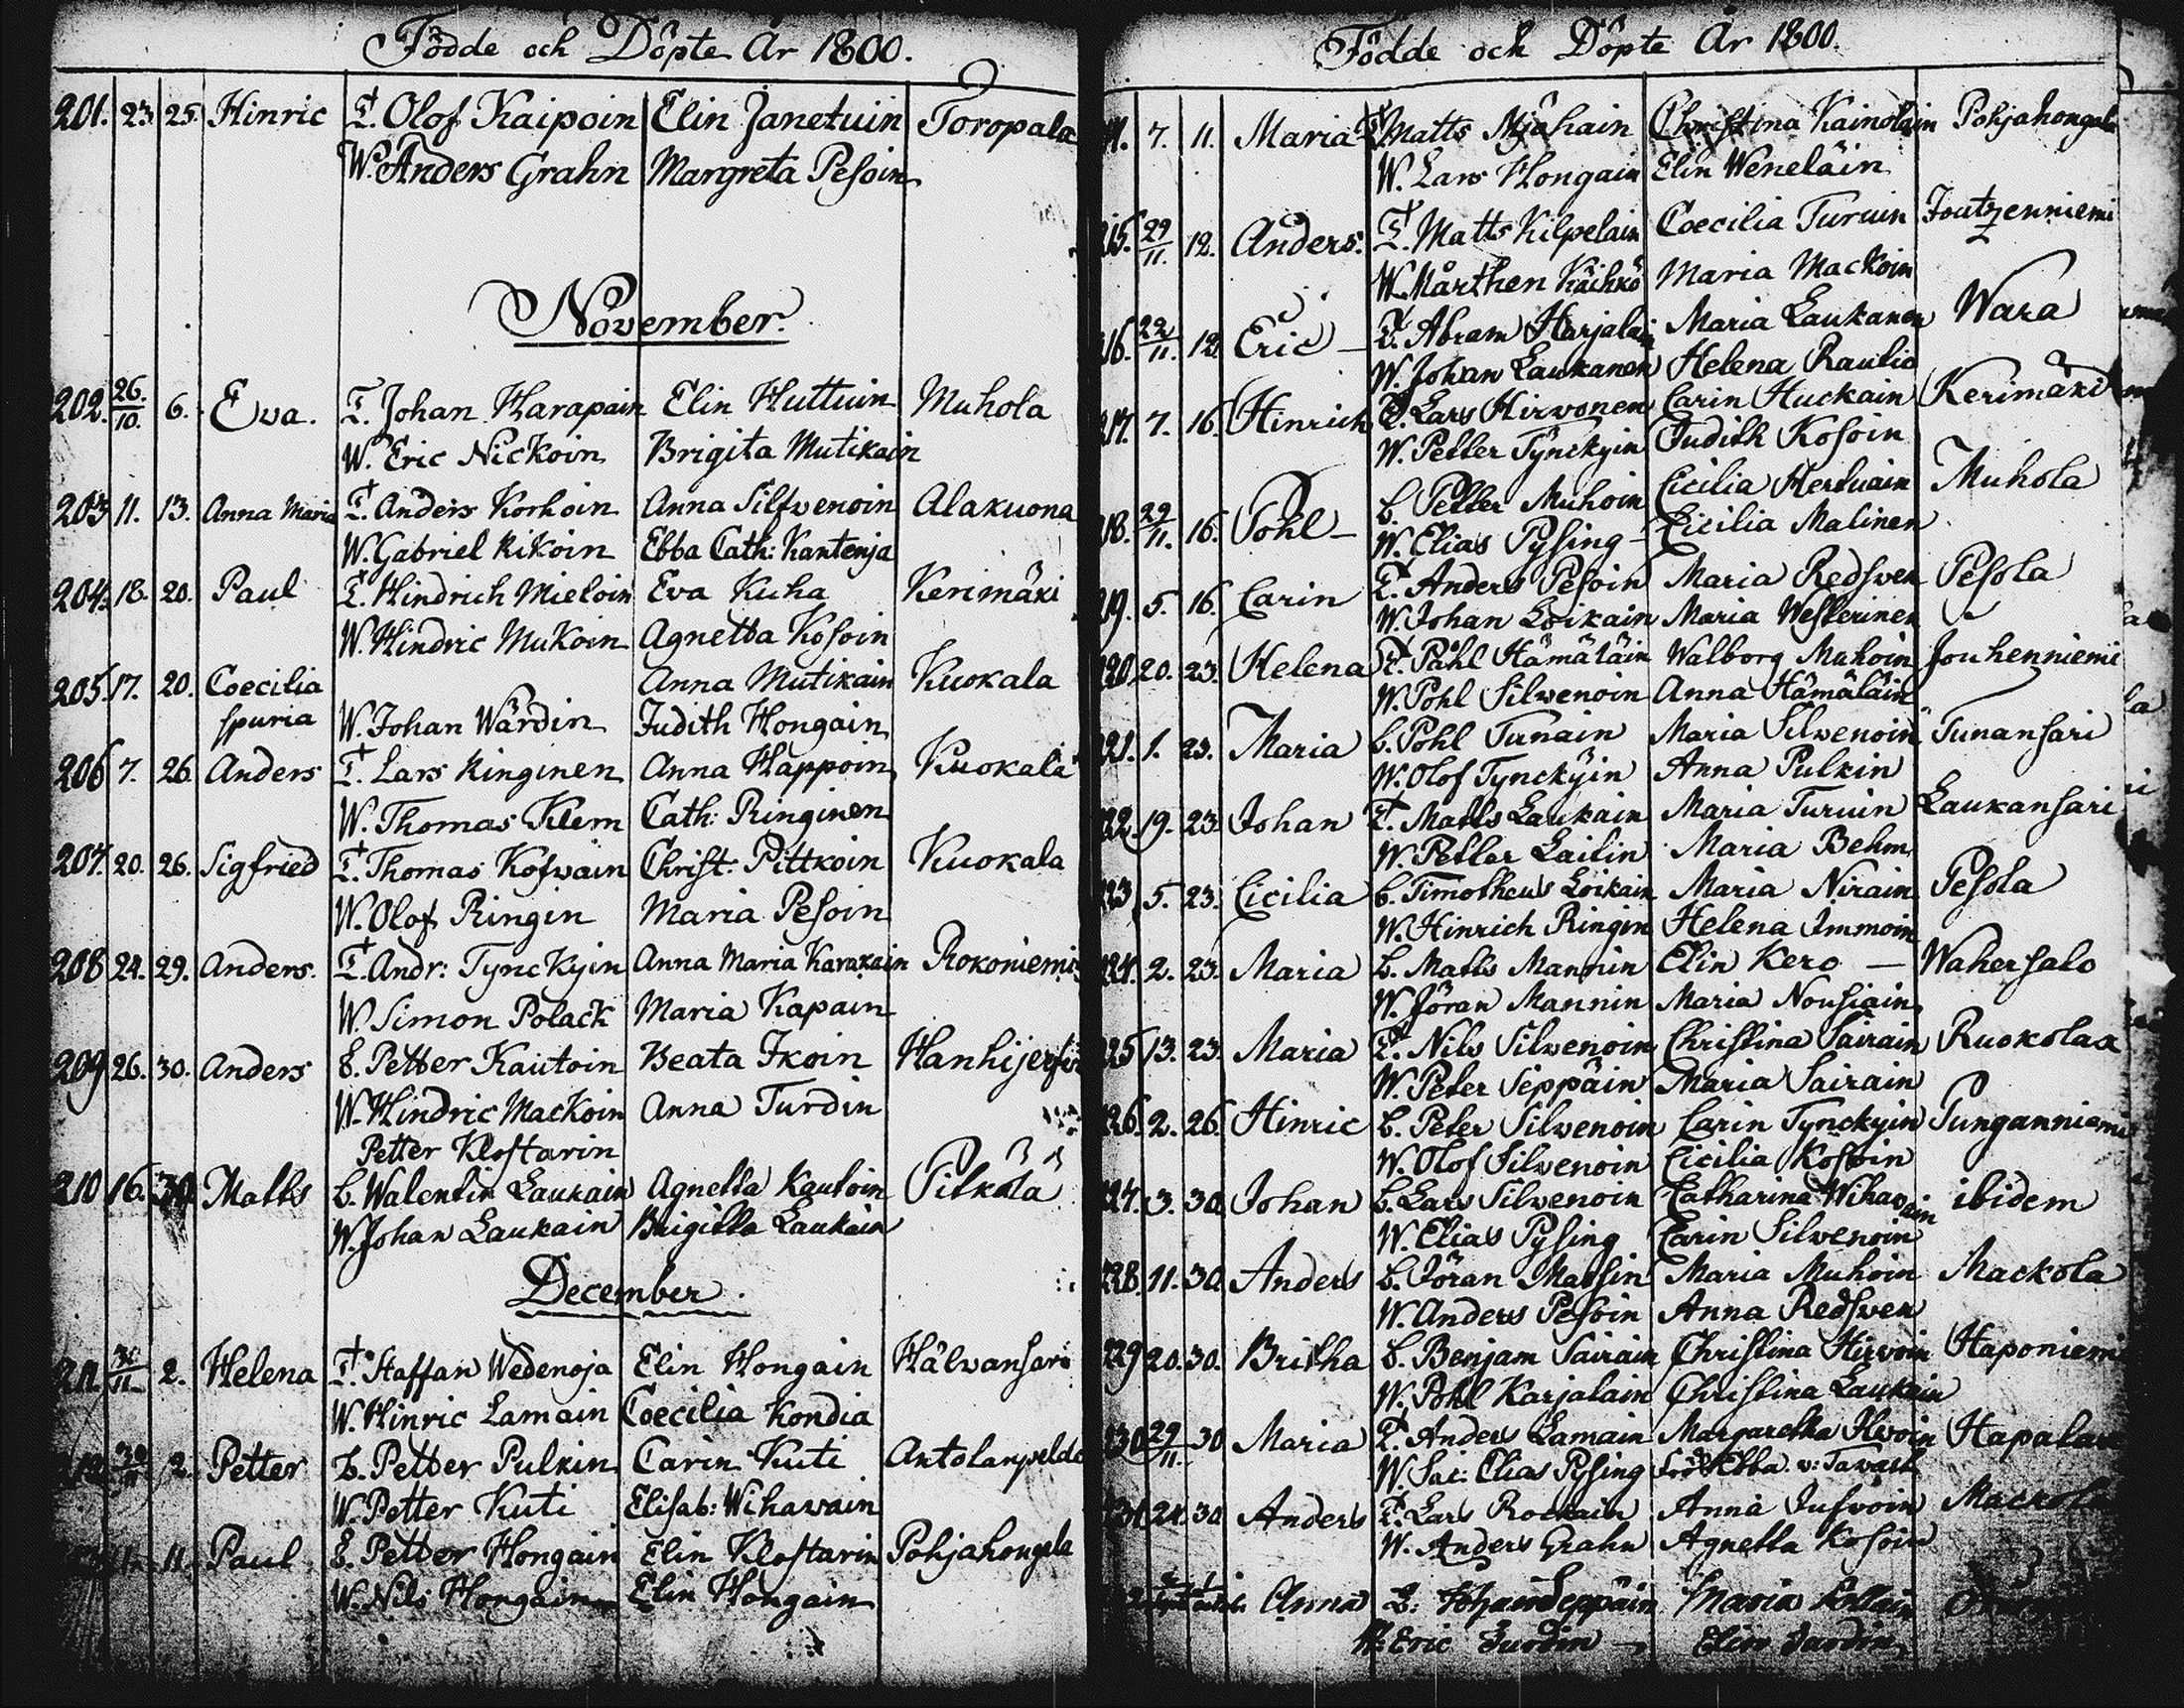 Födde och Döpte År 1800.
201. 23 25. Hinric T. Olof Kaipoin Elin Janetuin Toropala
W. Anders Grahn Margreta Pesoin
November.
202. 26./10. 6. Eva. T. Johan Harapain Elin Huttuin Muhola
W. Eric Nickoin Brigita Mutikain
203 11. 13. Anna Maria T. Anders Korhoin Anna Silfvenoin Alakuona
W. Gabriel Kikoin Ebba Cath: Kantenja
204. 18. 20. Paul T. Hindrich Mieloin Eva Kuha Kerimäki
W. Hindric Mukoin Agnetta Kosoin
205. 17. 20. Coecilia Anna Mutikain Kuokala
spuria W. Johan Wärdin Judith Hongain
206 7. 26. Anders T. Lars Kinginen Anna Happoin Kuokala
W. Thomas Klem Cath: Ringinen
207. 20. 26. Sigfried T. Thomas Kosvain Christ: Pittkoin Kuokala
W. Olof Ringin Maria Pesoin
208 24. 29. Anders. T. Andr: Tynckyin Anna Maria Karakain Rokoniemi
W. Simon Polack Maria Kapain
209 26. 30. Anders B. Petter Kautoin Beata Ikoin
W. Hindric Mackoin Anna Turdin
Petter Klostarin
210 16. 30. Matts B. Walentin Laukain Agnetta Kautoin Pitkälä
W. Johan Laukain Brigitta Laukain
December.
211. 30/11. 2. Helena T. Staffan Wedenoja Elin Hongain Hälvansari
W. Hinric Lamain Coecilia Kondia
212 30/11 2. Petter B. Petter Pulkin Carin Kuti
W. Petter Kuti Elisab: Wihawain
11. Paul B. Petter Hongain Elin Klostarin Pohjahongala
W. Nils Hongain Elin Hongain
Födde och Döpte År 1800.
7. 11. Maria T. Matts Christina Kainolain Pohjahongala
W. Lars Hongain Elin Weneläin
215. 29/11. 12. Anders. T. Matts Kilpelain Coecilia Turuin Joutzenniemi
W. Mårthen Käihkö Maria Mackoin
216. 22/11. 12. Eric T. Abram Harjalain Maria Laukanen Wara
W. Johan Laukanen Helena Raulio
217. 7. 16. Hinrich T. Lars Hirwonen Carin Huckain Kerimäki
W. Petter Tynckyin Judith Kosoin
218. 29/11. 16. Pohl B. Petter Muhoin Cicilia Hertuain Muhola
W. Elias Pysing Cicilia Malinen
219. 5. 16. Carin T. Anders Pesoin Maria Redsven Pesola
W. Johan Loikain Maria Westerinen
220. 20. 23. Helena T. Påhl Hämäläin Walborg Muhoin Jouhenniemi
W. Pohl Silwenoin Anna Hämäläin
221. 1. 23. Maria B. Pohl Tunain Maria Silwenoin Tunansari
W. Olof Tynckyin Anna Pulkin
222. 19. 23. Johan T. Matts Laukain Maria Turuin Laukansari
W. Petter Laitin Maria Behm
223 5. 23. Cicilia B. Timotheus Loikain Maria Nirain Pesola
W. Hinrich Ringin Helena Immoin
224. 2. 23. Maria B. Matts Mannin Elin Kero Wahersalo
W. Jöran Mannin Maria Nousiain
225 13. 23. Maria T. Nils Silwenoin Christina Sairain Ruokolax
W. Peter Seppäin Maria Sairain
226. 2. 26. Hinric B. Peter Silwenoin Carin Tynckyin Punganniemi
W. Olof Silwenoin Cicilia Kossoin
227. 3. 30. Johan B. Lars Silwenoin Catharina Wihavain ibidem
W. Elias Pysing Carin Silwenoin
228. 11. 30. Anders B. Jöran Massin Maria Muhoin Mackola
W. Anders Pesoin Anna Redsven
229 20. 30. Britha B. Benjam Sairain Christina Hirvoin Haponiemi
W. Pohl Karjalain Christina Laukain
230 29/11. 30 Maria T. Anders Lamain Margaretha
W. Sac: Elias Pysing Ebba v: Tawast
231. 24. 30 Anders T. Lars Rockain Anna Mackola
W. Anders Grahn Agnetta Kosoin
Anna B: Johan Seppäin Maria
W. Eric Turdin Elin Turdin